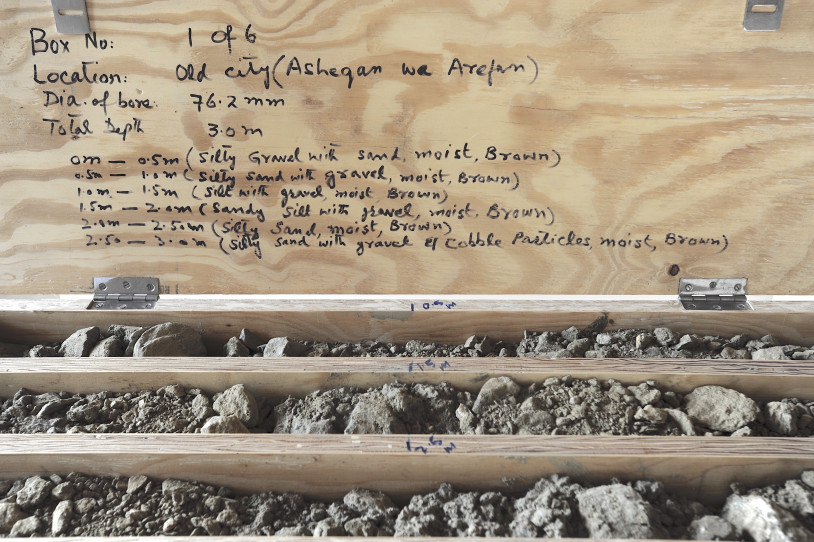 Box No: 1 of 6
Location: Old city (Asheqan wa Arefan)
Dia. of bore: 76.2 mm
Total Depth 3.0 m
0m — 0.5m (Silty Gravel with sand, moist, Brown)
0.5m — 1.0m (Silty sand with gravel, moist, Brown)
1.0m — 1.5m (Silt with gravel, moist, Brown)
1.5m — 2.0m (Sandy Silt with gravel, moist, Brown)
2.0m — 2.50m (Silty Sand, moist, Brown)
2.50 — 3.0m (Silty sand with gravel & Cobble Particles, moist, Brown)